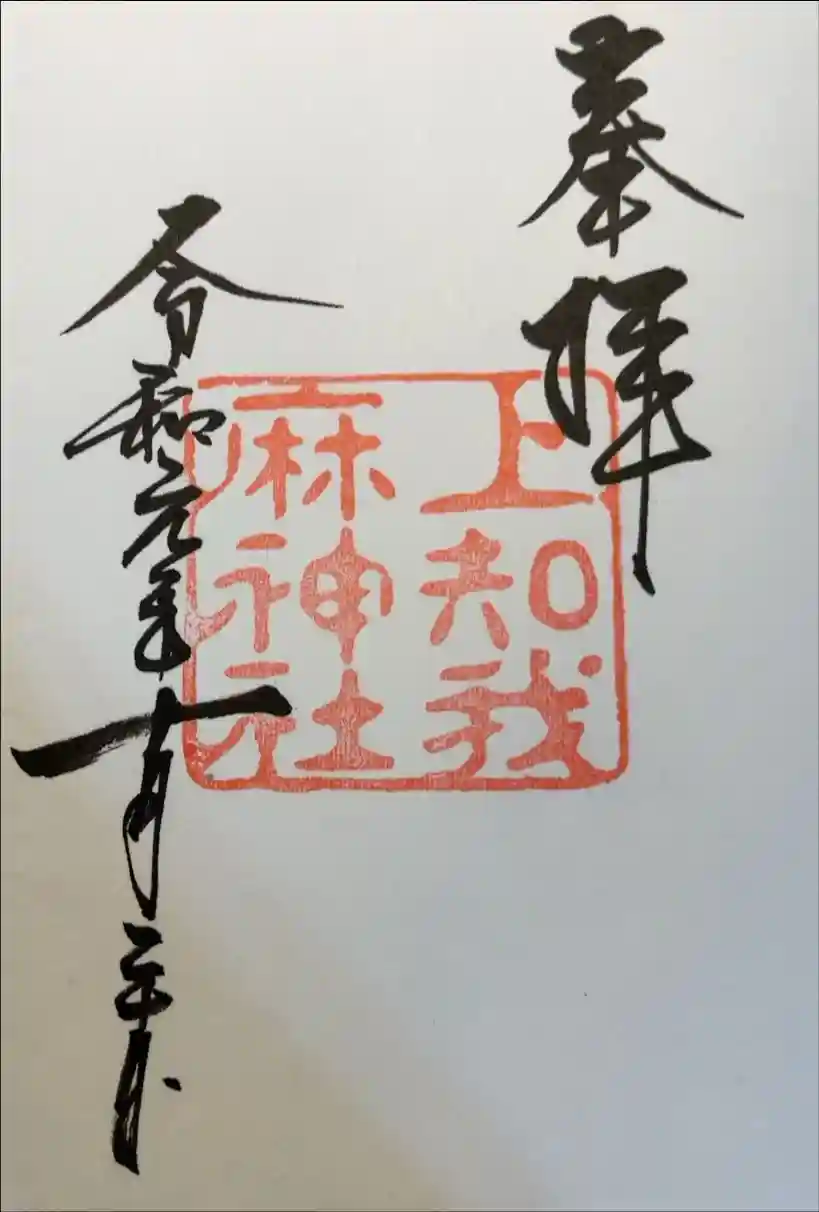 奉拝
上知我
麻神社
令和元年十月二十日